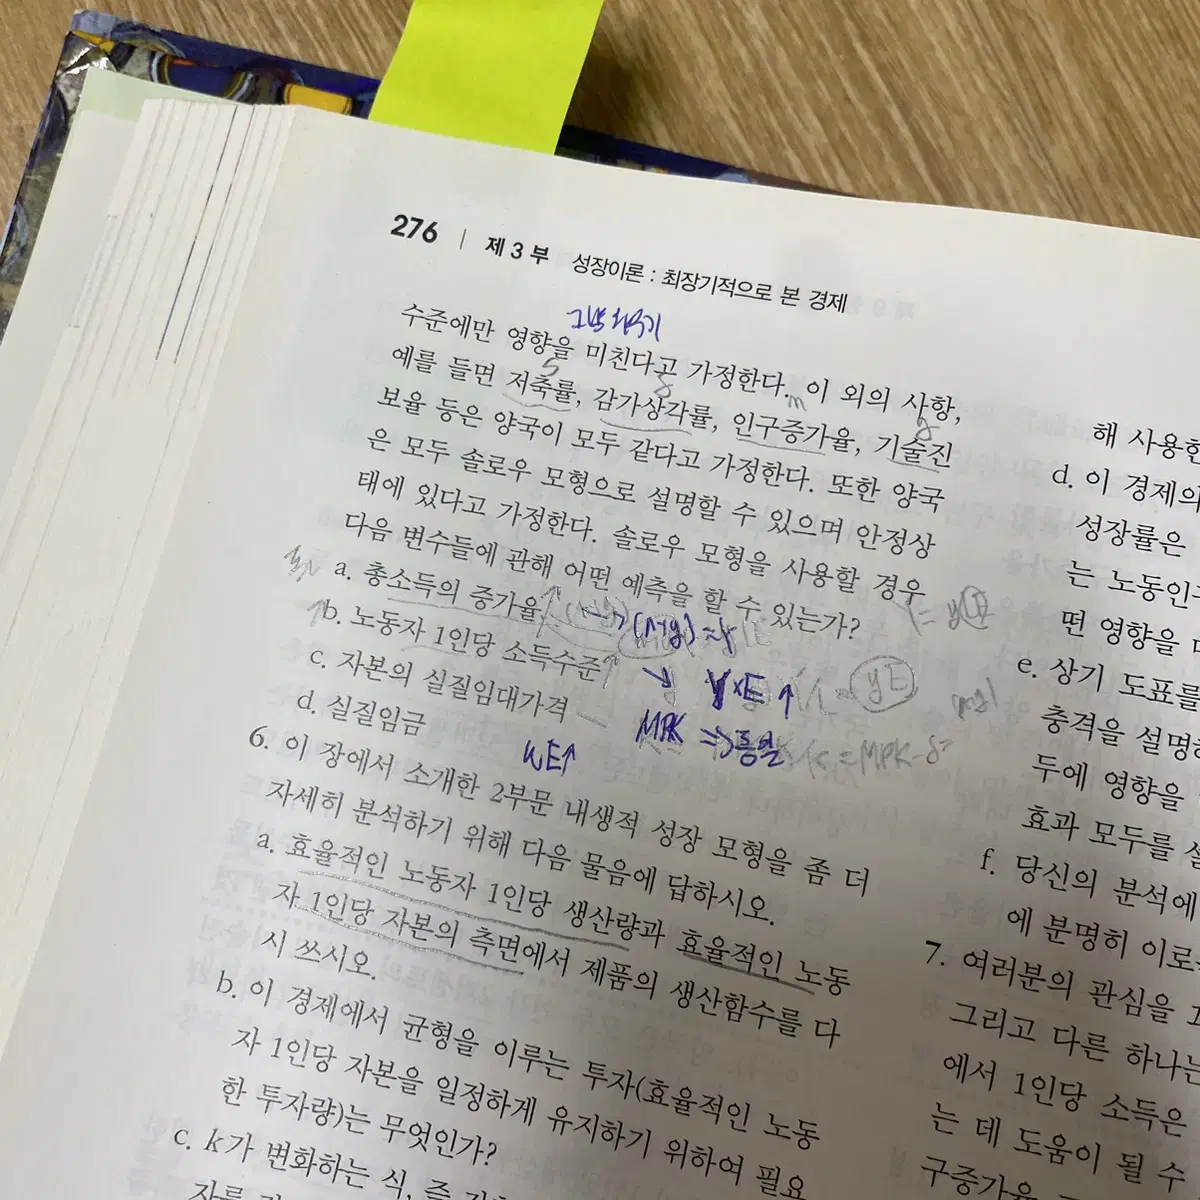 276 | 제 3 부 성장이론 : 최장기적으로 본 경제
수준에만 영향을 미친다고 가정한다. 이 외의 사항,
s δ n g
예를 들면 저축률, 감가상각률, 인구증가율, 기술진
보율 등은 양국이 모두 같다고 가정한다. 또한 양국
은 모두 솔로우 모형으로 설명할 수 있으며 안정상
태에 있다고 가정한다. 솔로우 모형을 사용할 경우
다음 변수들에 관해 어떤 예측을 할 수 있는가?
a. 총소득의 증가율
↑b. 노동자 1인당 소득수준↑
c. 자본의 실질임대가격
MPK ⇒ 동일
= MPK-δ
d. 실질임금
WE↑
6. 이 장에서 소개한 2부문 내생적 성장 모형을 좀 더
자세히 분석하기 위해 다음 물음에 답하시오.
a. 효율적인 노동자 1인당 생산량과 효율적인 노동
자 1인당 자본의 측면에서 제품의 생산함수를 다
시 쓰시오.
b. 이 경제에서 균형을 이루는 투자(효율적인 노동
자 1인당 자본을 일정하게 유지하기 위하여 필요
한 투자량)는 무엇인가?
c. k가 변화하는 식, 즉
해 사용한
d. 이 경제의
성장률은
는 노동인구
떤 영향을 미
e. 상기 도표를
충격을 설명
두에 영향을
효과 모두를
f. 당신의 분석에
에 분명히 이로
7. 여러분의 관심을
그리고 다른 하나는
에서 1인당 소득은
는 데 도움이 될 수
구증가율